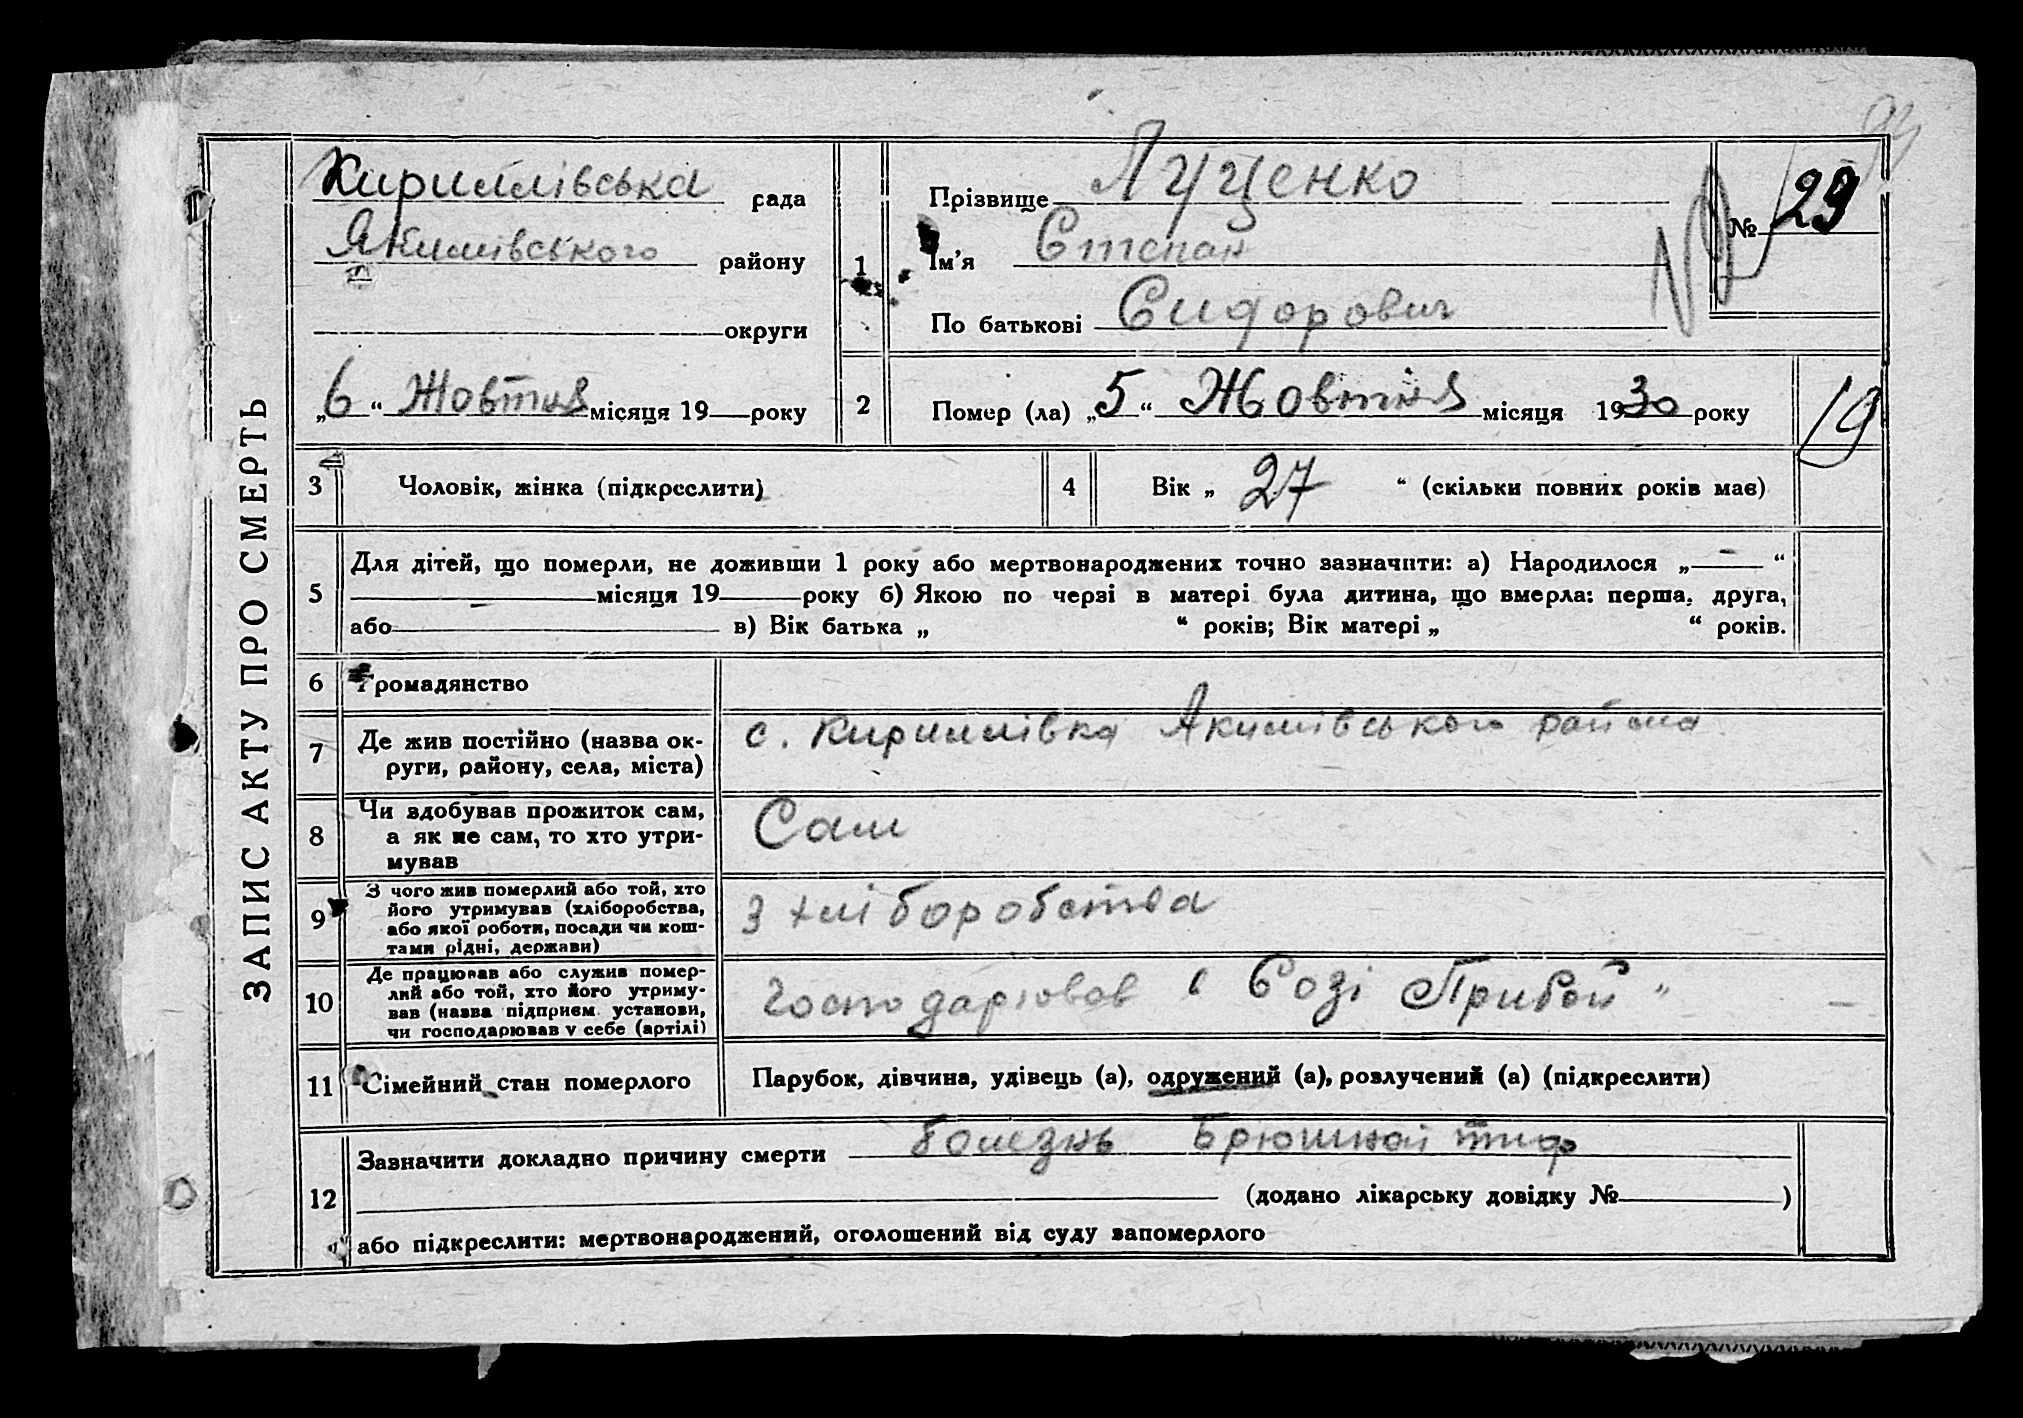 ЗАПИС АКТУ ПРО СМЕРТЬ
Кириллівська рада
Якимівського району
округи
„6“ Жовтня місяця 19 року
1
Прізвище Луценко
Ім’я Степан
По батькові Сидорович
№ 29
2
Помер (ла) „5“ Жовтня місяця 1930 року
19
3
Чоловік, жінка (підкреслити)
4
Вік „ 27 “ (скільки повних років має)
5
Для дітей, що померли, не доживши 1 року або мертвонароджених точно зазначити: а) Народилося „ “
місяця 19 року б) Якою по черзі в матері була дитина, що вмерла: перша, друга,
або в) Вік батька „ “ років; Вік матері „ “ років.
6
Громадянство
7
Де жив постійно (назва ок-
руги, району, села, міста)
с. Кириллівка Акимівського района
8
Чи здобував прожиток сам,
а як не сам, то хто утри-
мував
Сам
9
З чого жив померлий або той, хто
його утримував (хліборобства,
або якої роботи, посади чи кош-
тами рідні, держави)
З хліборобства
10
Де працював або служив помер-
лий або той, хто його утриму-
вав (назва підприєм. установи,
чи господарював у себе (артілі)
Господарював в Созі Прибой "
11
Сімейний стан померлого
Парубок, дівчина, удівець (а), одружений (а), розлучений (а) (підкреслити)
12
Зазначити докладно причину смерти болезнь Брюшной тиф
(додано лікарську довідку № )
або підкреслити: мертвонароджений, оголошений від суду запомерлого